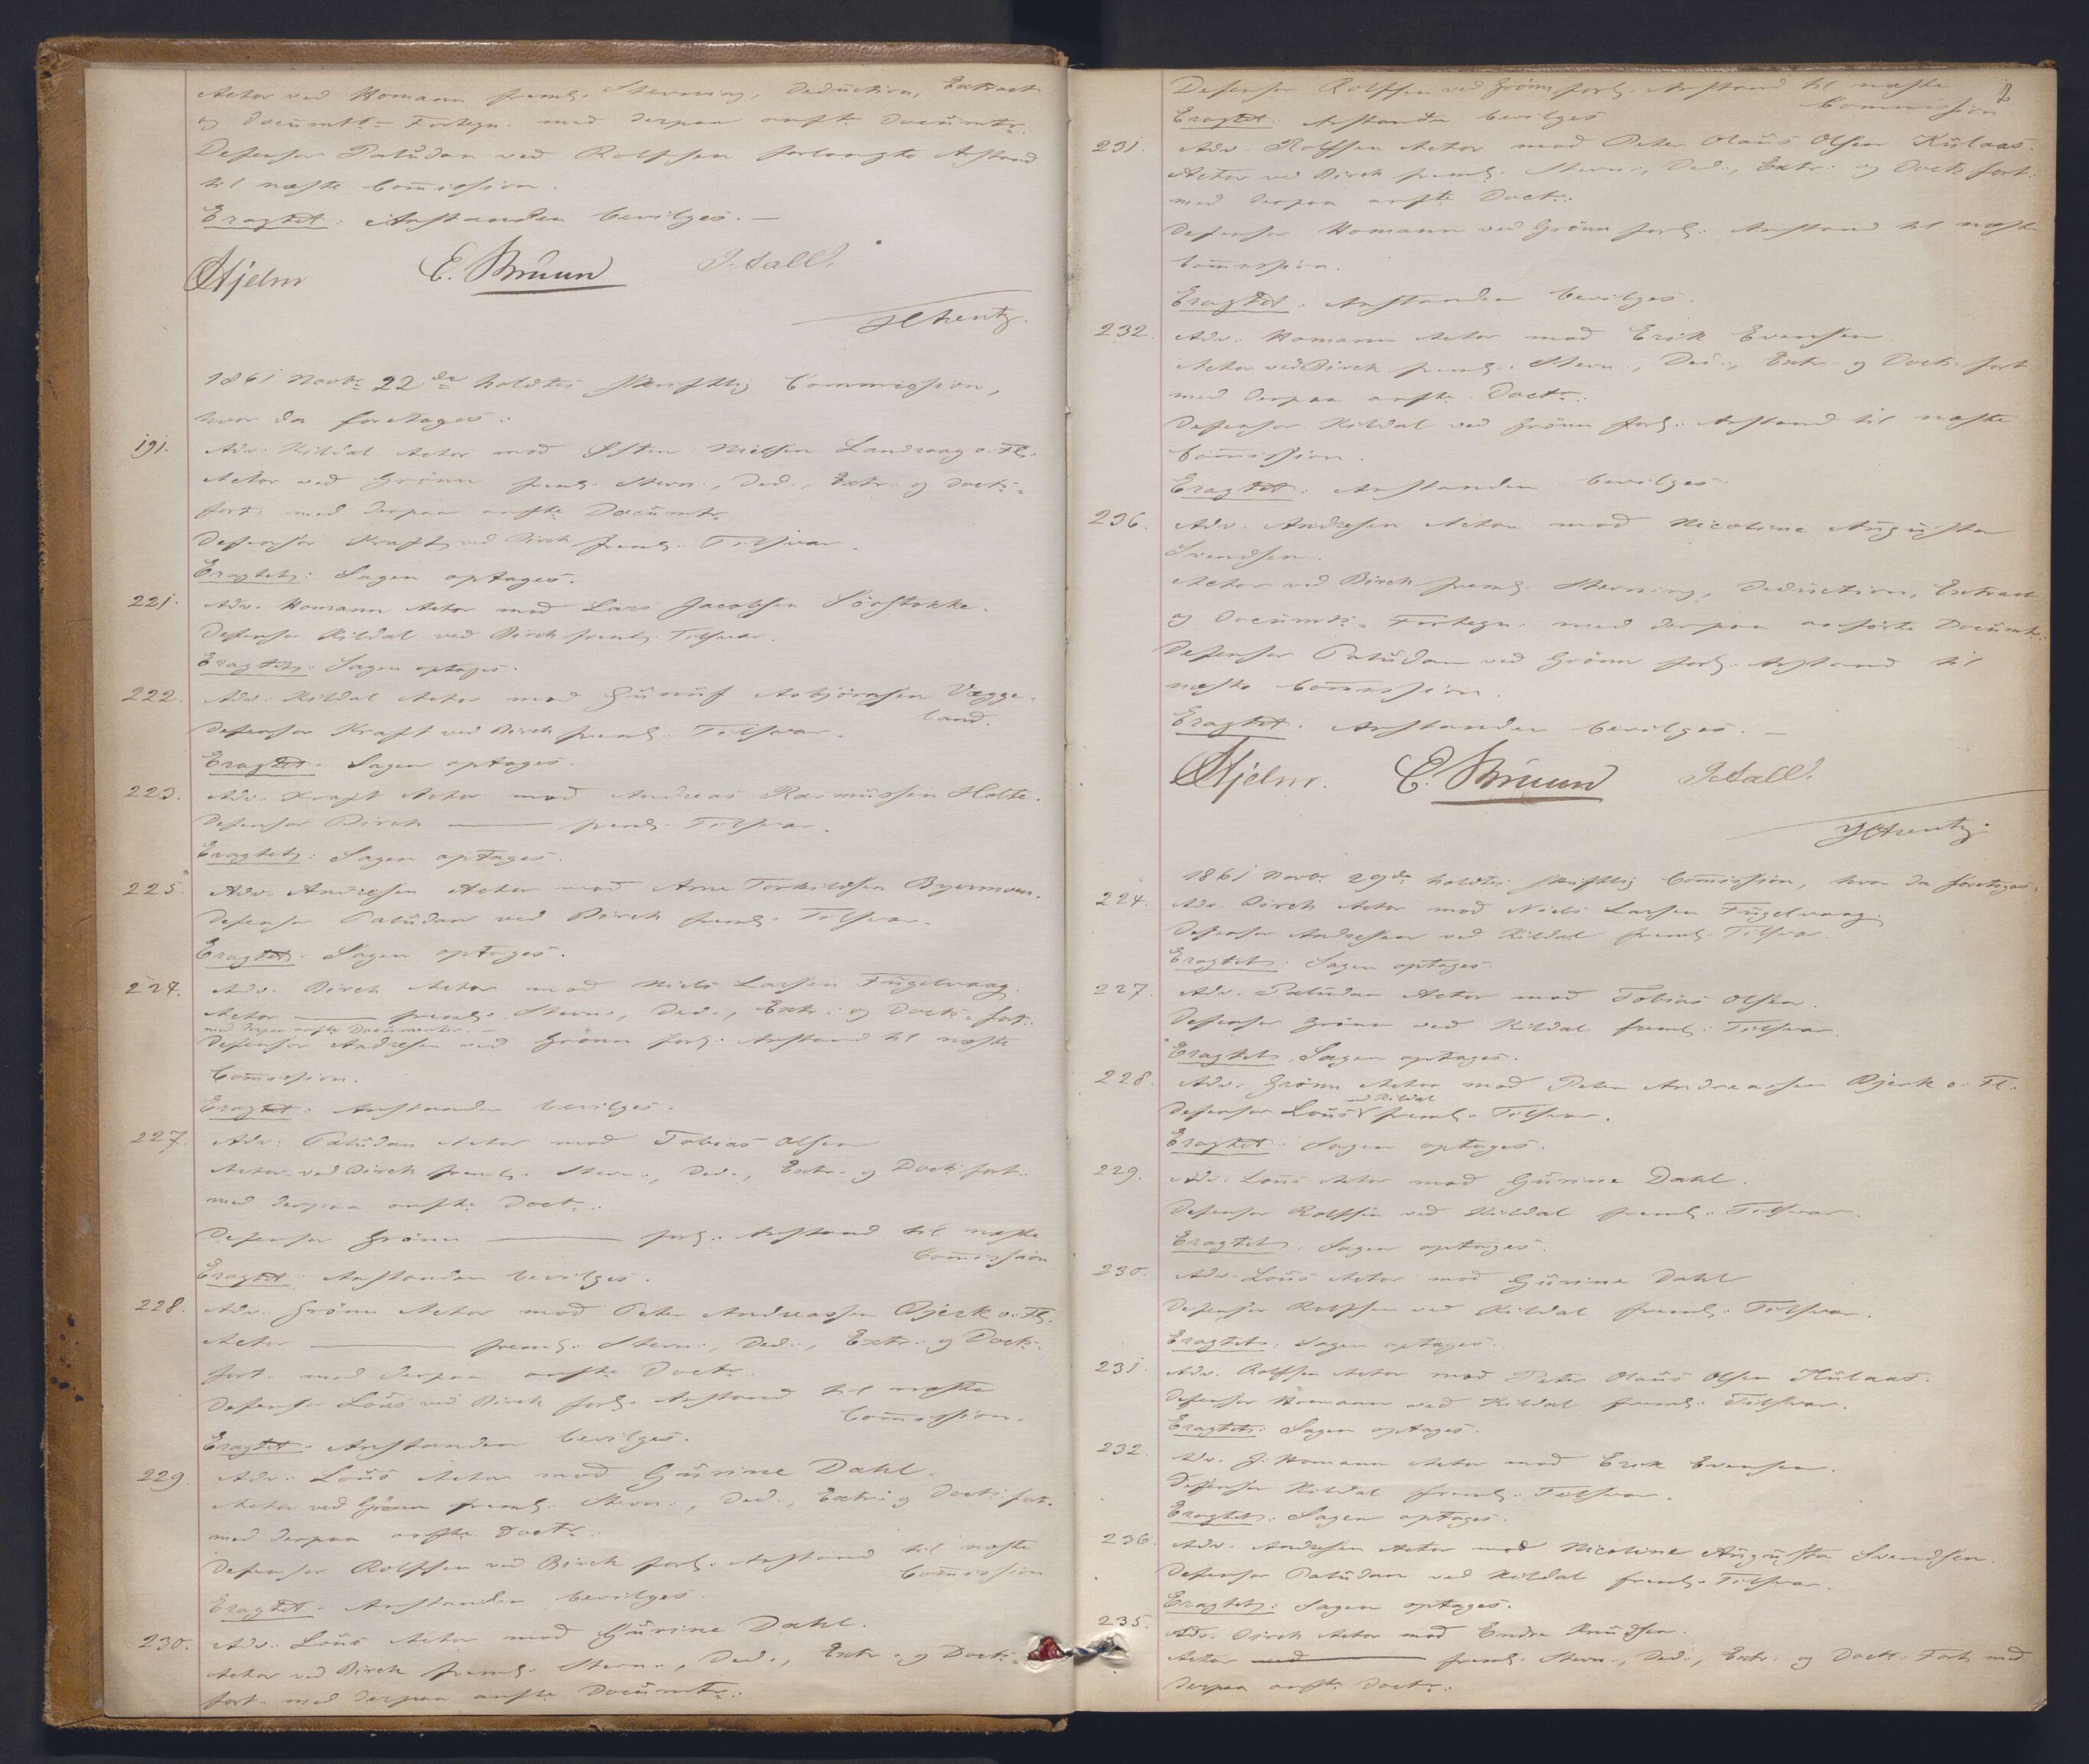 Actor ved Homann freml. Stevning, Deduction, Extract
og Documts- Fortegn. med derpaa anfte Documtr.
Defensor Paludan ved Rolfsen forlangte Anstand
til næste Commission.
Eragtet: Anstanden bevilges. —
Hjelm E. Bruun J. Aall.
1861 Novbr 22de holdtes skriftlig Commission,
hvor da foretages:
191. Adv. Kildal Actor mod Østen Nielsen Landvaag o. Fl.
Actor ved Grönn freml. Stevn., Ded., Extr. og Docts-
fort. med derpaa anfte Documtr.
Defensor Kraft ved Birch freml. Tilsvar.
Eragtet: Sagen optages.
221. Adv. Homann Actor mod Lars Jacobsen Sörstokke.
Defensor Kildal ved Birch freml. Tilsvar.
Eragtet: Sagen optages.
222. Adv. Kildal Actor mod Gunuf Asbjörnsen Vægge-
land.
Defensor Kraft ved Birch freml. Tilsvar.
Eragtet: Sagen optages.
223. Adv. Kraft Actor mod Andreas Rasmussen Holte.
Defensor Birch — freml. Tilsvar.
Eragtet: Sagen optages.
225. Adv. Andresen Actor mod Arne Torkildsen
Defensor Paludan ved Birch freml. Tilsvar.
Eragtet: Sagen optages.
224. Adv. Birch Actor mod Niels Larsen Fugelvaag.
Actor — freml. Stevn., Ded., Extr. og Docts- fort.
med derpaa anfte Documenter. —
Defensor Andresen ved Grönn forl. Anstand til næste
Commission.
Eragtet: Anstanden bevilges.
227. Adv. Paludan Actor mod Tobias Olsen
Actor ved Birch freml. Stevn., Ded., Extr. og Docts fort.
med derpaa anfte Doctr.
Defensor Grönn — forl. Anstand til næste
Commission
Eragtet: Anstanden bevilges.
228. Adv. Grönn Actor mod Peter Andreassen Bjerk o. Fl.
Actor — freml. Stevn., Ded., Extr. og Docts-
fort. med derpaa anfte Doctr.
Defensor Lous ved Birch forl. Anstand til næste
Commission.
Eragtet: Anstanden bevilges.
229. Adv. Lous Actor mod Gurine Dahl.
Actor ved Grönn freml. Stevn., Ded., Extr. og Docts fort.
med derpaa anfte Doctr.
Defensor Rolfsen ved Birch forl. Anstand til næste
Commission
Eragtet: Anstanden bevilges.
230. Adv. Lous Actor mod Gurine Dahl.
Actor ved Birch freml. Stevn., Ded., Extr. og Docts-
fort. med derpaa anfte Documtr.
2
Defensor Rolfsen ved Grönn forl. Anstand til næste
Commission
Eragtet: Anstanden bevilges
231. Adv. Rolfsen Actor mod Peter Olaus Olsen Kulaas.
Actor ved Birch freml. Stevn., Ded., Extr. og Docts fort.
med derpaa anfte Doctr.
Defensor Homann ved Grönn forl. Anstand til næste
Commission.
Eragtet: Anstanden bevilges.
232. Adv. Homann Actor mod Erik Evensen.
Actor ved Birch freml. Stevn., Ded., Extr. og Docts fort.
med derpaa anfte Doctr.
Defensor Kildal ved Grönn forl. Anstand til næste
Commission.
Eragtet: Anstanden bevilges.
236. Adv. Andresen Actor mod Nicoline Augusta
Svendsen.
Actor ved Birch freml. Stevning, Deduction, Extract
og Documts- Fortegn. med derpaa anförte Documtr.
Defensor Paludan ved Grönn forl. Anstand til
næste Commission.
Eragtet: Anstanden bevilges. —
Hjelm. E. Bruun J. Aall.
1861 Novbr 29de holdtes skriftlig Commission, hvor da foretages:
224. Adv. Birch Actor mod Niels Larsen Fugelvaag.
Defensor Andresen ved Kildal freml. Tilsvar.
Eragtet: Sagen optages.
227. Adv. Paludan Actor mod Tobias Olsen.
Defensor Grönn ved Kildal freml. Tilsvar.
Eragtet: Sagen optages.
228. Adv. Grönn Actor mod Peter Andreassen Bjerk o. Fl.
Defensor Lous ved Kildal freml. Tilsvar.
Eragtet: Sagen optages.
229. Adv. Lous Actor mod Gurine Dahl.
Defensor Rolfsen ved Kildal freml. Tilsvar.
Eragtet: Sagen optages.
230. Adv. Lous Actor mod Gurine Dahl
Defensor Rolfsen ved Kildal freml. Tilsvar.
Eragtet: Sagen optages.
231. Adv. Rolfsen Actor mod Peter Olaus Olsen Kulaas.
Defensor Homann ved Kildal freml. Tilsvar.
Eragtet: Sagen optages.
232. Adv. J. Homann Actor mod Erik Evensen.
Defensor Kildal freml. Tilsvar.
Eragtet: Sagen optages.
236. Adv. Andresen Actor mod Nicoline Augusta Svendsen.
Defensor Paludan ved Kildal freml. Tilsvar.
Eragtet: Sagen optages.
235. Adv. Birch Actor mod Endre Knudsen.
Actor ved — freml. Stevn., Ded., Extr. og Docts. Fort. med
derpaa anfte Doctr.